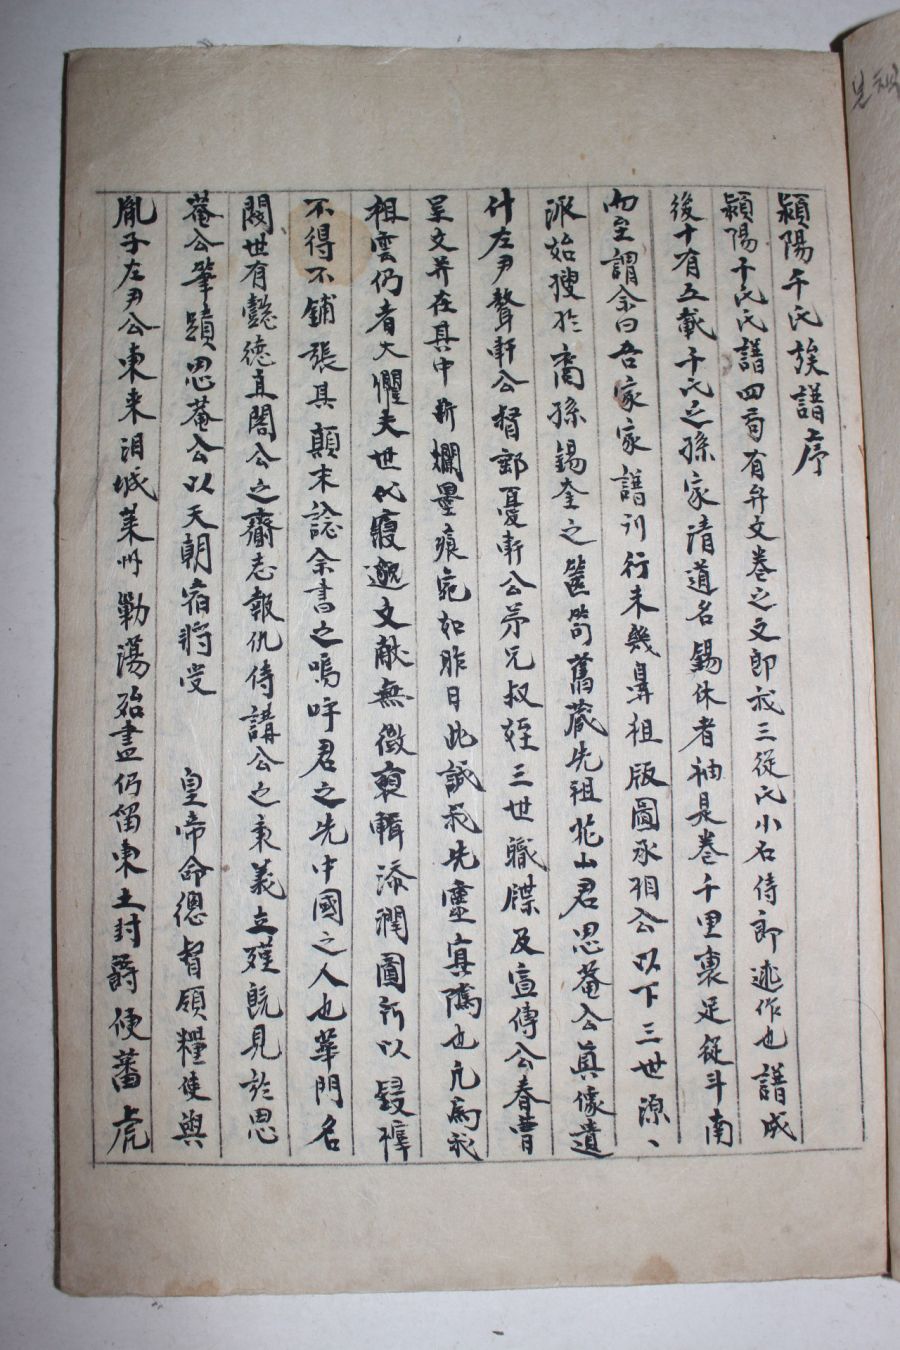 潁陽千氏族譜序
潁陽千氏氏譜四蒭有弁文卷之文郎我三從氏小石侍郎述作也譜成
後十有五載千氏之孫家清道名錫休者袖是卷千里裹足從斗南
而至謂余曰吾家家譜刊行未幾鼻祖版圖承相公以下三世源〻
派始搜於裔孫錫奎之篋笥舊藏先祖花山君思菴公眞像遺
什左尹聱軒公督郵憂軒公弟兄叔姪三世職牒及宣傳公春曹
呈文幷在其中斷爛墨痕宛如昨日此誠我先靈寘隲也凡爲我
祖雲仍者大懼夫世代寢邈文献無徵裒輯添潤圖所以鋟榟
不得不鋪張其顛末諗余書之嗚呼君之先中國之人也華門名
閥世有懿德直閣公之齋志報仇侍講公之秉義立殣旣見於思
菴公筆蹟思菴公以天朝宿將受 皇帝命總督領糧使與
胤子左尹公東来泪城萊州勦蕩殆盡仍留東土封爵便蕃虎